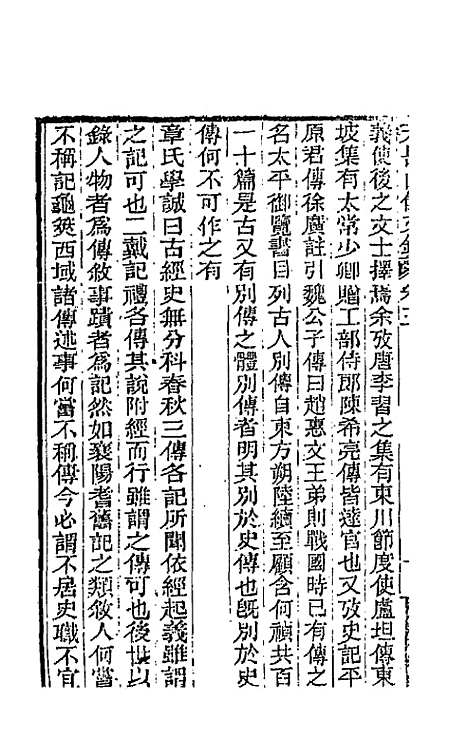 義使後之文士擇焉余攷唐李習之集有東川節度使盧坦傳東
坡集有太常少卿贈工部侍郎陳希亮傳皆達官也又攷史記平
原君傳徐廣註引魏公子傳曰趙惠文王弟則戰國時已有傳之
名太平御覽書目列古人別傳自東方朔陸績至顧含何禎共百
一十篇是古又有別傳之體別傳者明其別於史傳也旣別於史
傳何不可作之有
章氏學誠曰古經史無分科春秋三傳各記所聞依經起義雖謂
之記可也二戴記禮各傳其說附經而行雖謂之傳可也後世以
錄人物者爲傳敘事蹟者爲記然如襄陽耆舊記之類敘人何嘗
不稱記龜筴西域諸傳述事何嘗不稱傳今必謂不居史職不宜